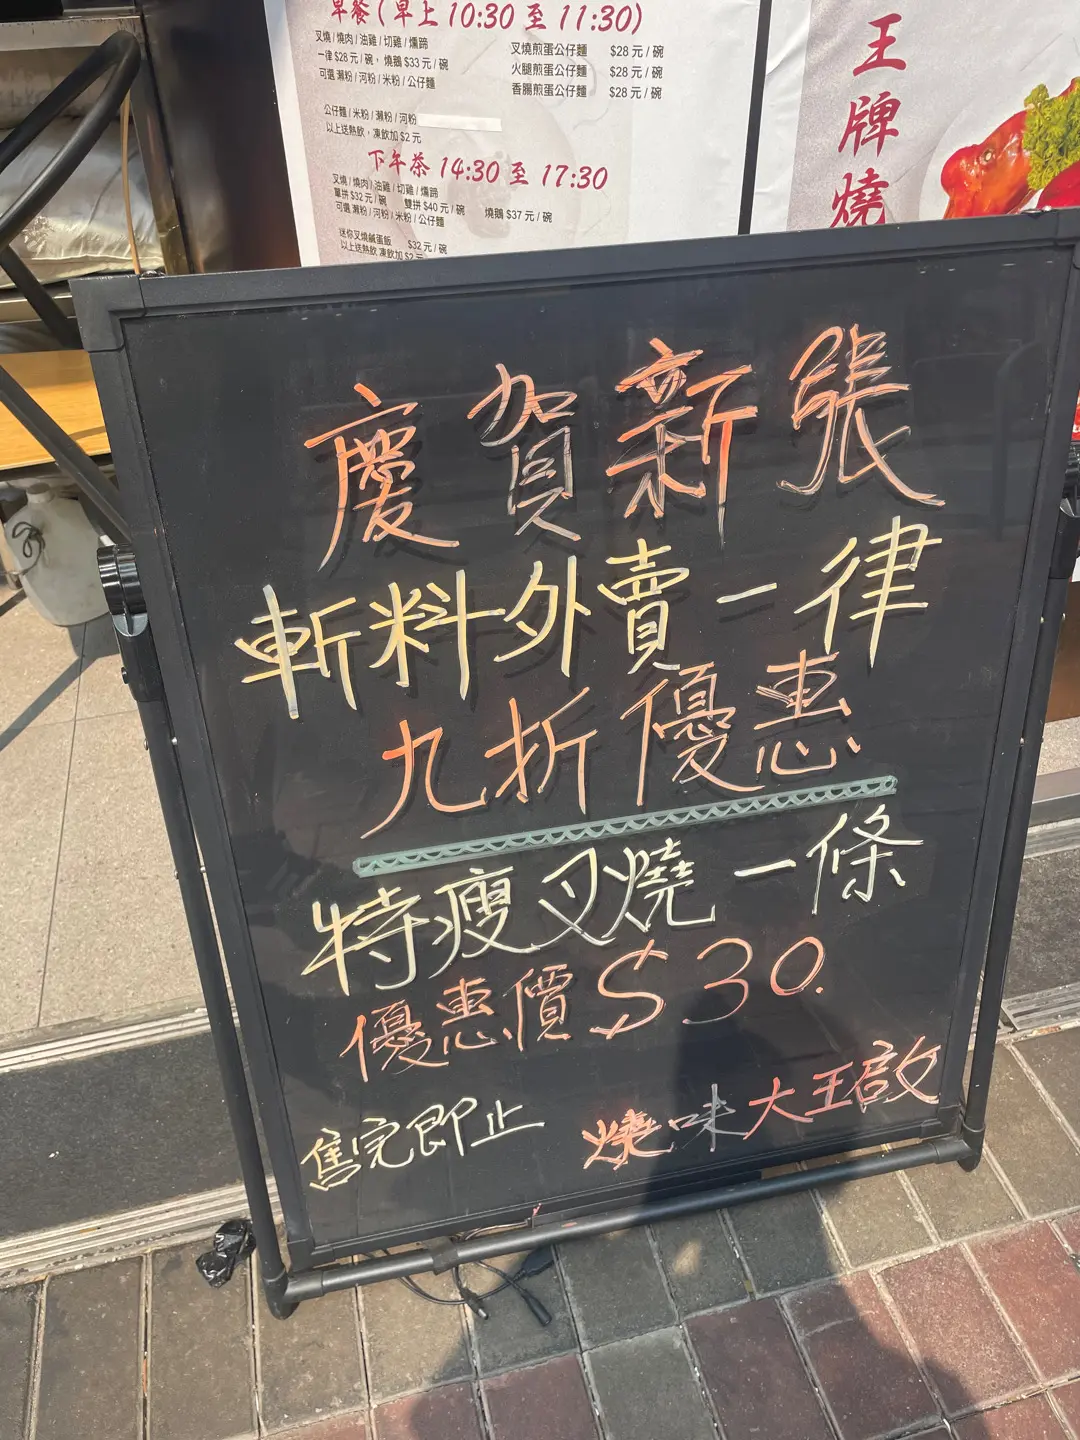 早餐（早上 10:30 至 11:30）
叉燒 / 燒肉 / 油雞 / 切雞 / 燻蹄
一律 $28 元 / 碗，燒鵝 $33 元 / 碗
可選 瀨粉 / 河粉 / 米粉 / 公仔麵
叉燒煎蛋公仔麵 $28 元 / 碗
火腿煎蛋公仔麵 $28 元 / 碗
香腸煎蛋公仔麵 $28 元 / 碗
公仔麵 / 米粉 / 瀨粉 / 河粉
以上送熱飲，凍飲加 $2 元
下午茶 14:30 至 17:30
叉燒 / 燒肉 / 油雞 / 切雞 / 燻蹄
單拼 $32 元 / 碗 雙拼 $40 元 / 碗 燒鵝 $37 元 / 碗
可選 瀨粉 / 河粉 / 米粉 / 公仔麵
迷你叉燒鹹蛋飯 $32 元 / 碗
以上送熱飲 凍飲加 $2 元
王牌燒
慶賀新張
斬料外賣一律
九折優惠
特瘦叉燒一條
優惠價 $30.
售完即止
燒味大王啟